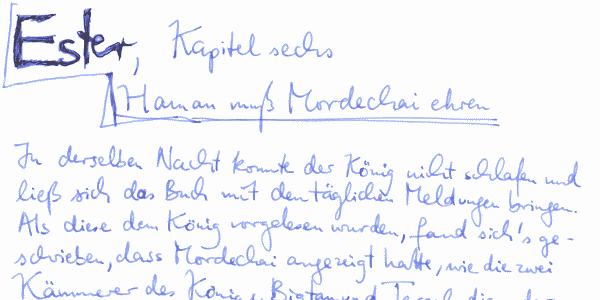 Ester, Kapitel sechs
Haman muß Mordechai ehren
In derselben Nacht konnte der König nicht schlafen und
ließ sich das Buch mit den täglichen Meldungen bringen.
Als diese dem König vorgelesen wurden, fand sich's ge-
schrieben, dass Mordechai angezeigt hatte, wie die zwei
Kämmerer des Königs, Bigtan und